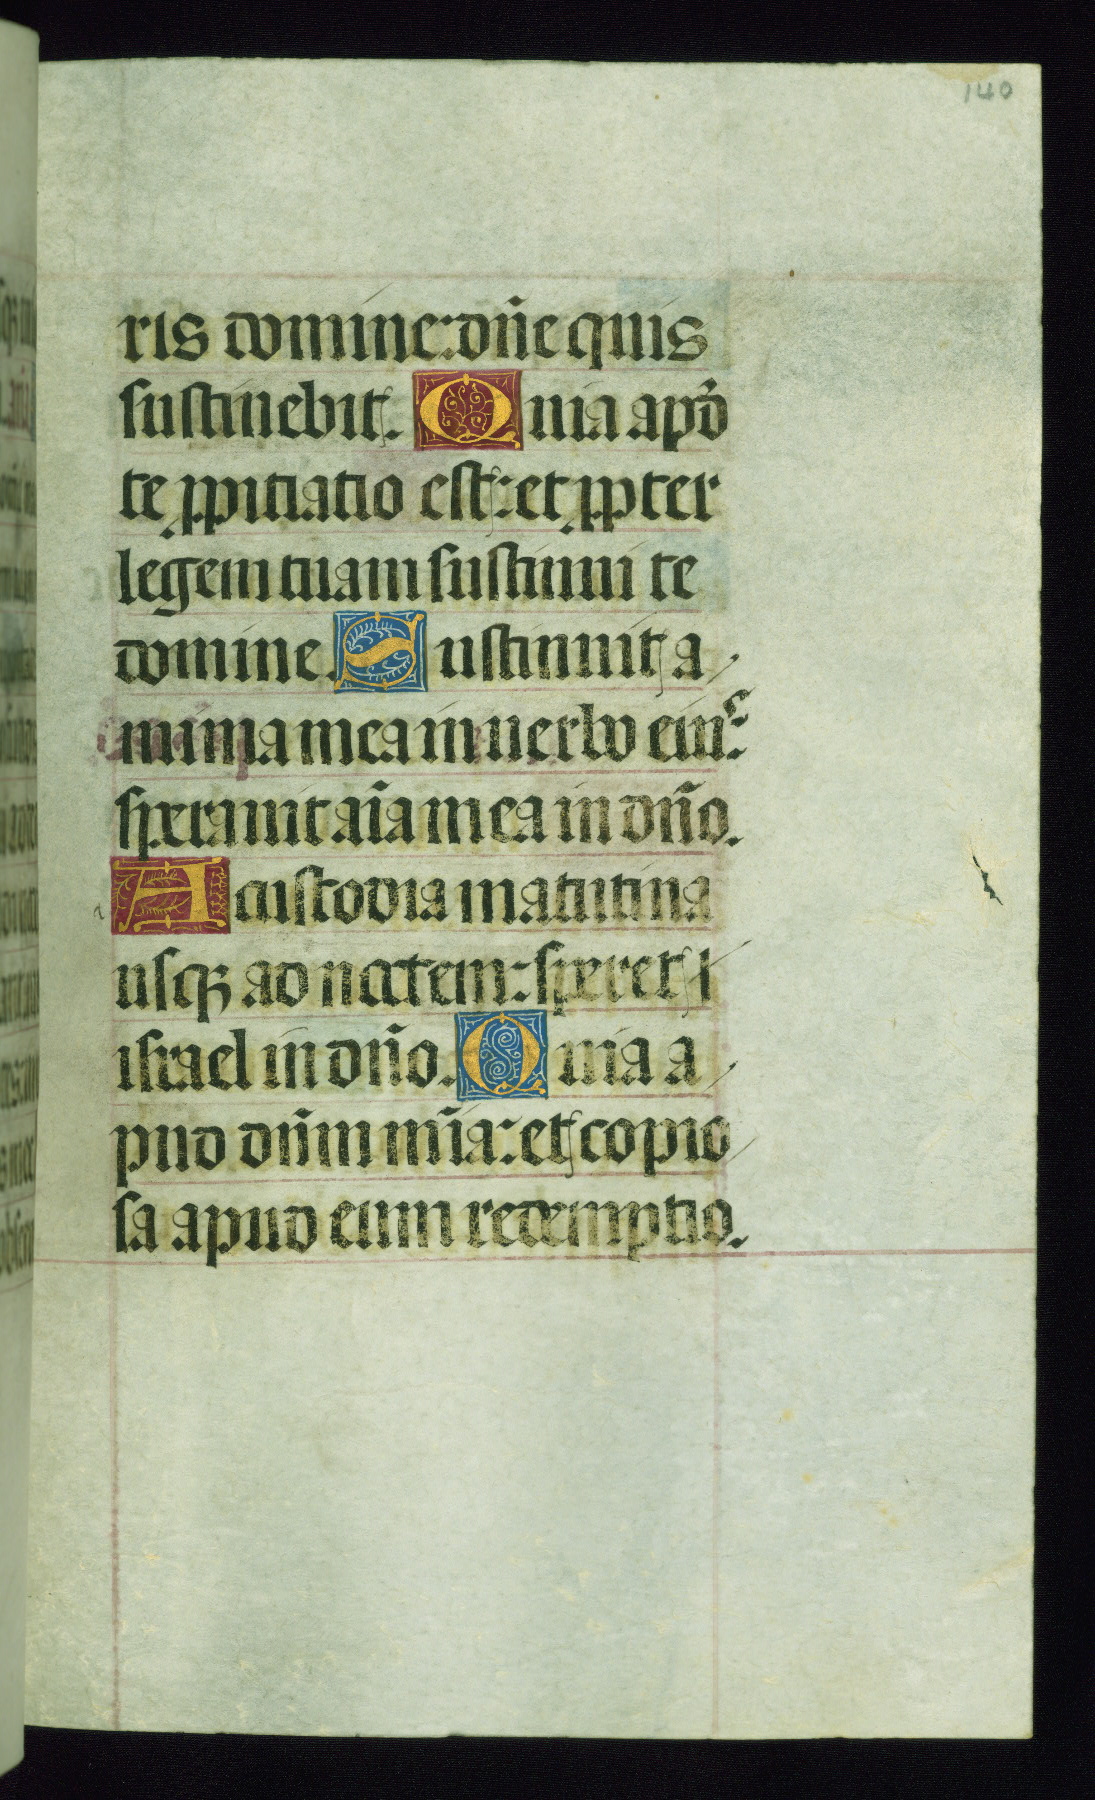 140
ris domine: dn̄e quis
sustinebit. Quia apd̄
te ꝓpitiatio est: et ꝓpter
legem tuam sustinui te
domine. Sustinuit a
nima mea in uerbo eiuꝰ:
sperauit aīa mea in dn̄o.
A custodia matutina
usqꝫ ad noctem: speret
israel in dn̄o. Quia a
pud dn̄m mīa: et copio
sa apud eum redemptio.